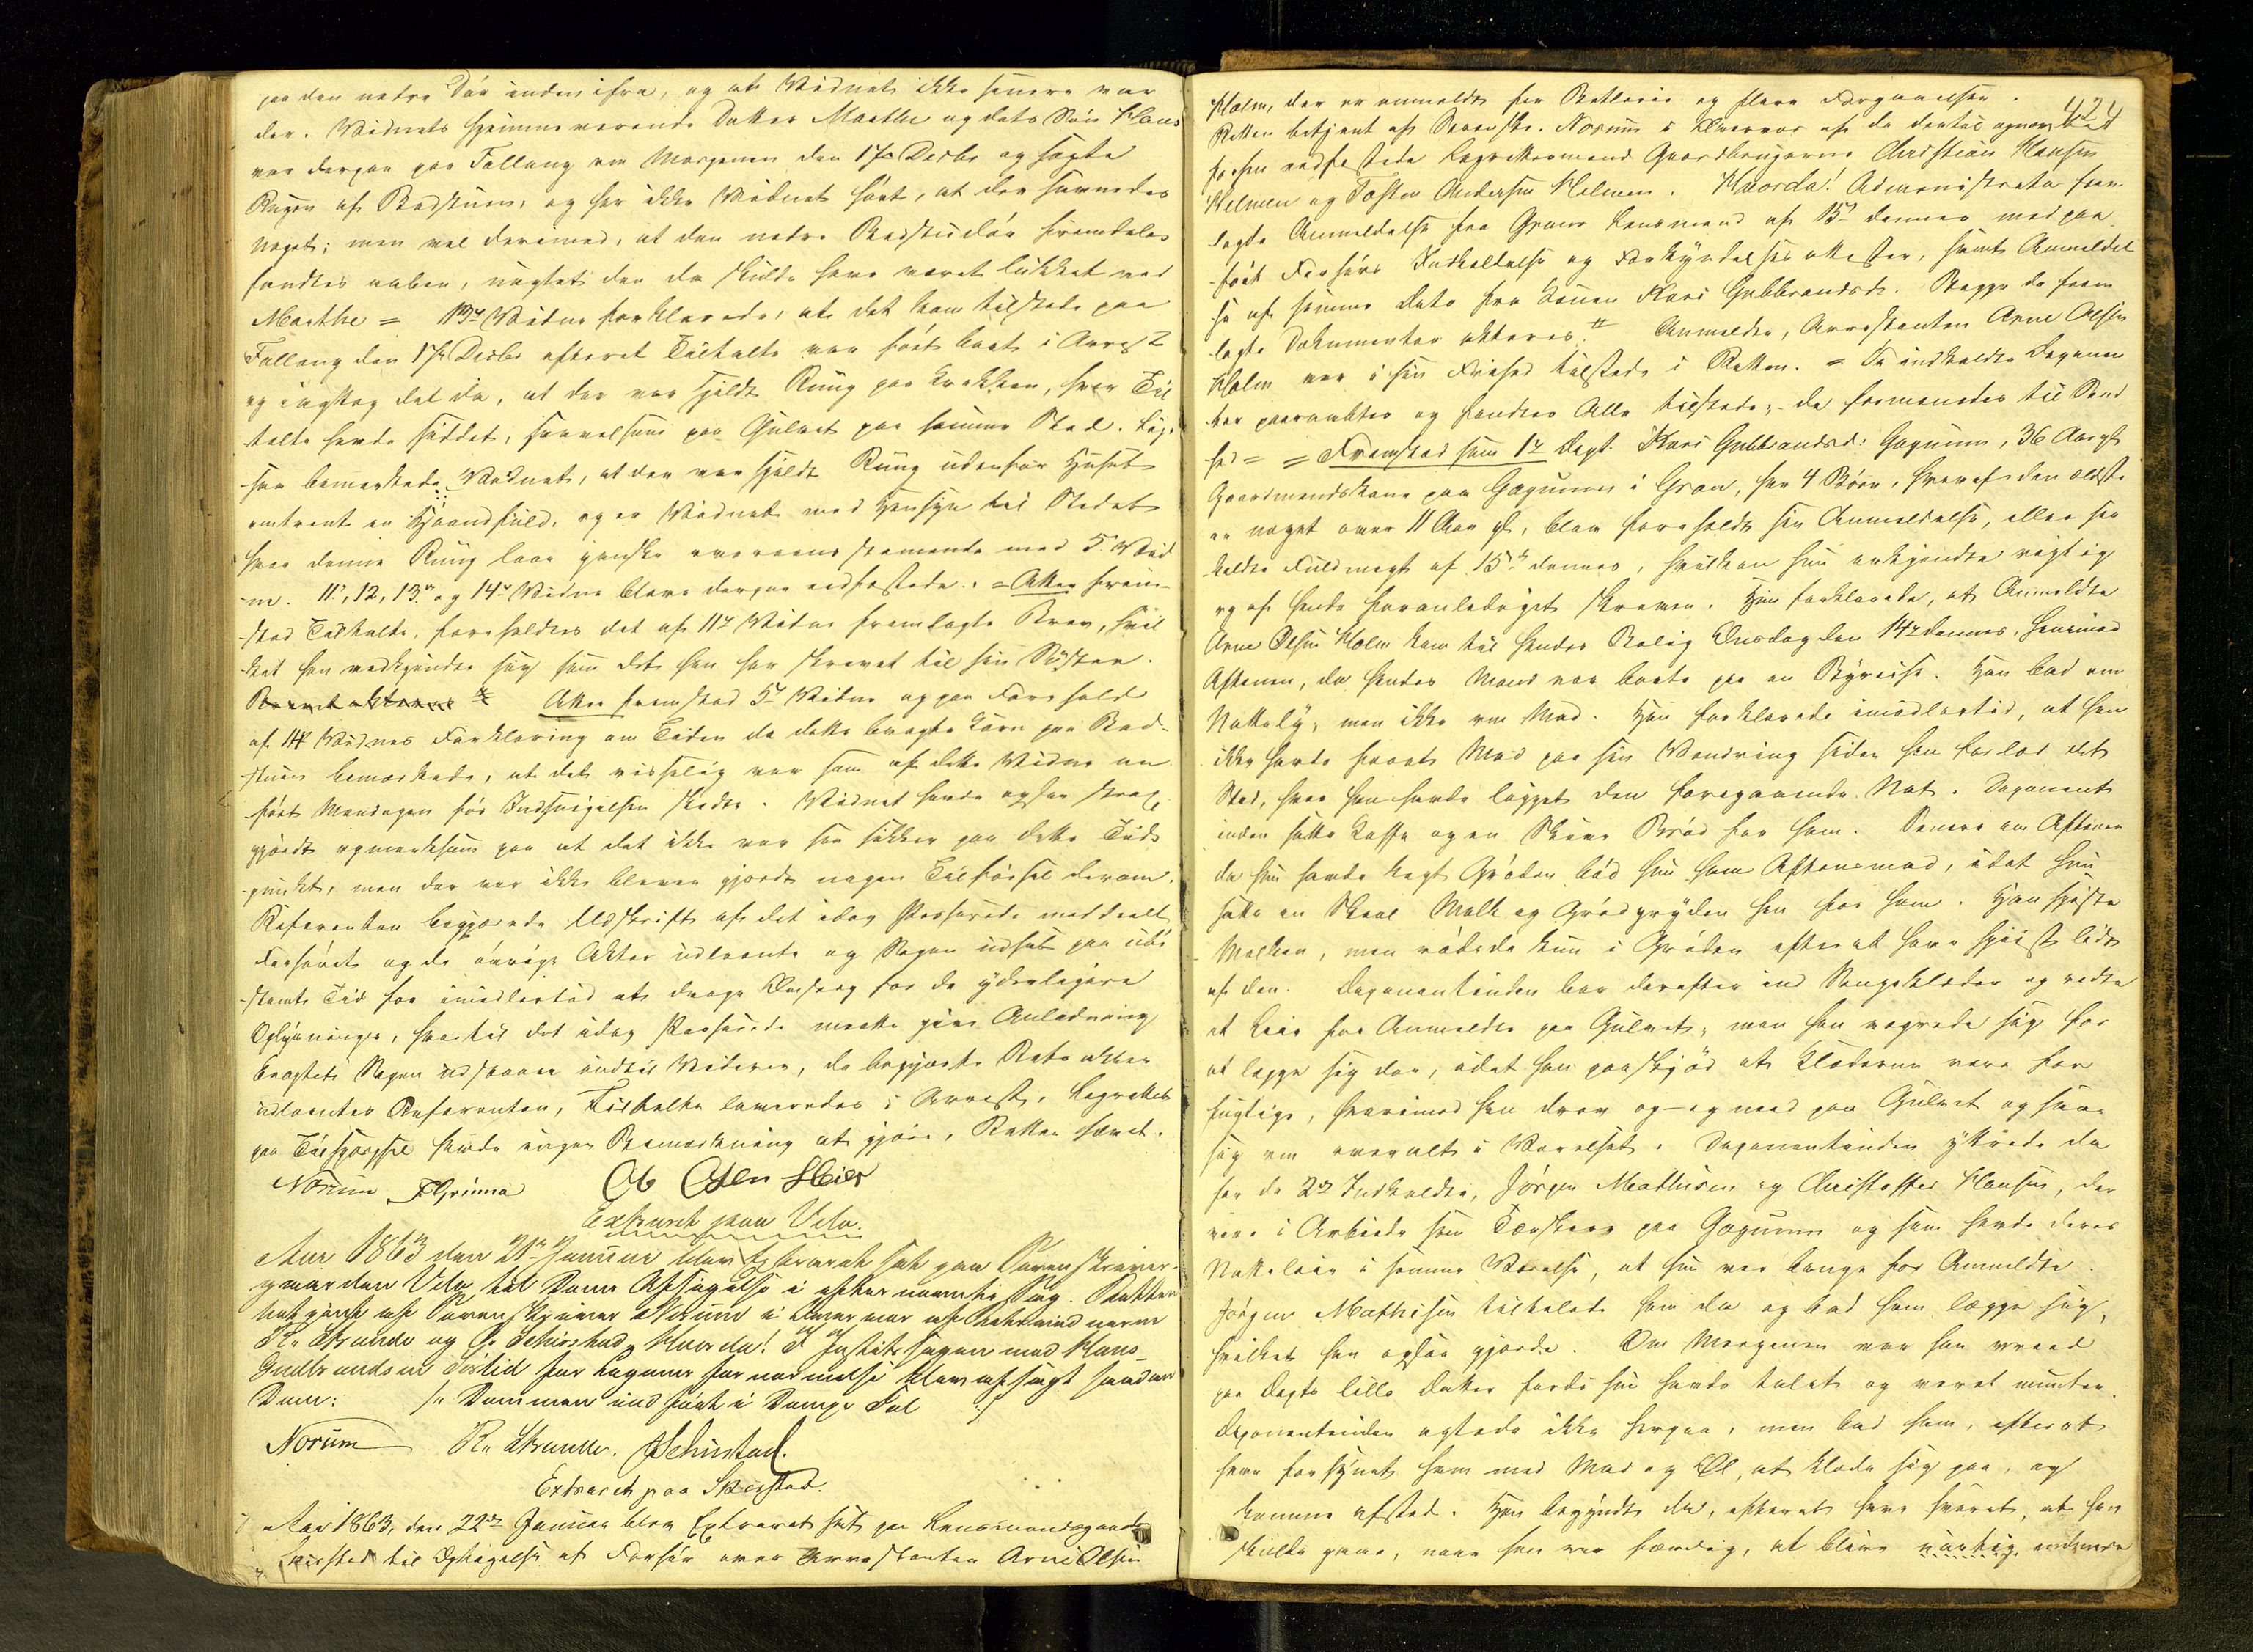 paa den nedre Dör indenifra, og at Vidnet ikke senere var
der. Vidnets hjemmeværende Datter Marthe og dets Sön Hans
var derpaa paa Fallang om Morgenen den 17de Decbr og sögte
Rugen af Badstuen, og har ikke Vidnet hört, at der savnedes
noget; men vel derimod, at den nedre Badstudör fremdeles
fandtes aaben, uagtet den da skulde have været lukket ved
Marthe = 13de Vidne forklarede, at det kom tilstede paa
Fallang den 17de Decbr efterat Tiltalte var fört bort i Arrest
og iagttog det da, at der var spildt Rug paa Krakken, hvor Til
talte havde siddet, saavelsom paa Gulvet paa samme Sted. Lige
saa bemærkede Vidnet, at der var spildt Rug udenfor Huset
omtrent en Haandfuld, og er Vidnet med Hensyn til Stedet
hvor denne Rug laae ganske overeensstemmende med 5. Vid
ne. 11, 12, 13de og 14de Vidne bleve derpaa edfæstede. = Atter frem
stod Tiltalte, foreholdtes det af 11te Vidne fremlagte Brev, hvil
ket han vedkjender sig som det han har skrevet til sin Söster.
Brevet akteres Atter fremstod 5te Vidne og paa Forehold
af 14de Vidnes Forklaring om Tiden da dette bragte Korn paa Bad
stuen bemærkede, at det visselig var som af dette Vidne an
fört Mandagen för Indsnigelsen skedte. Vidnet havde ogsaa strax
gjordt opmærksom paa at det ikke var saa sikker paa dette Tids
punkt, men der var ikke bleven gjordt nogen Tilförsel derom.
Referenten begjærede Udskrift af det idag Passerede meddeelt
Forhöret og de övrige Akter udlaante og Sagen udsat paa ube
stemt Tid for imidlertid at drage Omsorg for de yderligere
Oplysninger, hvortil det idag Passerede maatte give Anledning
Eragtet: Sagen udstaaer indtil Videre, de begjærte Retsakter
udlaantes Referenten, Tiltalte leveredes i Arrest. Lagrettet
paa Tilspörgsel havde ingen Bemærkning at gjöre. Retten hævet.
Norum
Extraret paa Velo.
Aar 1863 den 21de Januar blev Extraret sat paa Sorenskriver
gaarden Velo til Doms Afsigelse i efternævnte Sag. Retten
betjent af Sorenskriver Norum i Overvær af Lagrettemændene
og Hvorda! I Justitssagen mod Hans
Gulbrandsen for blev afsagt saadan
Dom: /: Dommen indfört i Domsp. Fol :/
Norum
Extraret paa Skiestad.
Aar 1863, den 22de Januar blev Extraret sat paa Lensmandsgaarden
Skiestad til Optagelse af Forhör over Arrestanten Arne Olsen
421
Holm, der er anmeldt for Betleri og flere Forgaaelser.
Retten betjent af Sorenskr. Norum i Overvær af de dertil opnævnte
forhen edfæstede Lagrettesmænd Gaardbrugerne Christian Hansen
Helmen og Tosten Andersen Helmen. Hvorda! Administrator frem
lagde Anmeldelse fra Grans Lensmand af 15de dennes med paa
fört Forhörs Indkaldelse og Forkyndelses attester, samt Anmeldel
se af samme Dato fra Konen Kari Gulbrandsd. Begge de frem
lagte Dokumenter akteres. Anmeldte, Arrestanten Arne Olsen
Holm var i sin Frihed tilstede i Retten. = De indkaldte Deponen
ter paaraabtes og fandtes Alle tilstede; de formanedes til Sand
hed = = Fremstod som 1ste Dept. Kari Gulbrandsd. Gagnum, 36 Aar gl.
Gaardmandskone paa Gagnum i Gran, har 4 Börn, hvoraf den ældste
er noget over 11 Aar gl., blev foreholdt sin Anmeldelse, eller saa
kaldte Fuldmagt af 15de dennes, hvilken hun erkjendte rigtig
og af hende foranlediget skreven. Hun forklarede, at Anmeldte
Arne Olsen Holm kom til hendes Bolig Onsdag den 14de dennes, henimod
Aftenen, da hendes Mand var borte paa en Byreise. Han bad om
Nattely, men ikke om Mad. Han forklarede imidlertid, at han
ikke havde faaet Mad paa sin Vandring siden han forlod det
Sted, hvor han havde ligget den foregaaende Nat. Deponent
inden satte Kaffe og en Skive Bröd for ham. Senere om Aftenen
da hun havde kogt Gröden böd hun ham Aftensmad, idet hun
satte en Skaal Melk og Grödgryden hen for ham. Han spiste
Melken, men rörte kun i Gröden efterat have spiist lidt
af den. Deponentinden bar derefter ind Sengeklæder og redte
et Leie for Anmeldte paa Gulvet, men han vægrede sig for
at lægge sig der, idet han paaskjöd at Klæderne vare for
fugtige, hvorimod han drev op og ned paa Gulvet og saae
sig om overalt i Værelset. Deponentinden yttrede da
for de 2de Indkaldte, Jörgen Mathisen og Christoffer Hansen, der
vare i Arbeide som Tærskere paa Gagnum og som havde deres
Natteleie i samme Værelse, at hun var bange for Anmeldte.
Jörgen Mathisen tiltalede ham da og bad ham lægge sig,
hvilket han ogsaa gjorde. Om Morgenen var han vreed
paa Depts lille Datter fordi hun havde talet og været munter.
Deponentinden agtede ikke herpaa, men bad ham, efterat
have forsynet ham med Mad og Öl, at klæde sig paa, og
komme afsted. Han begyndte da, efterat have svaret, at han
skulde gaae, naar han var færdig, at blive